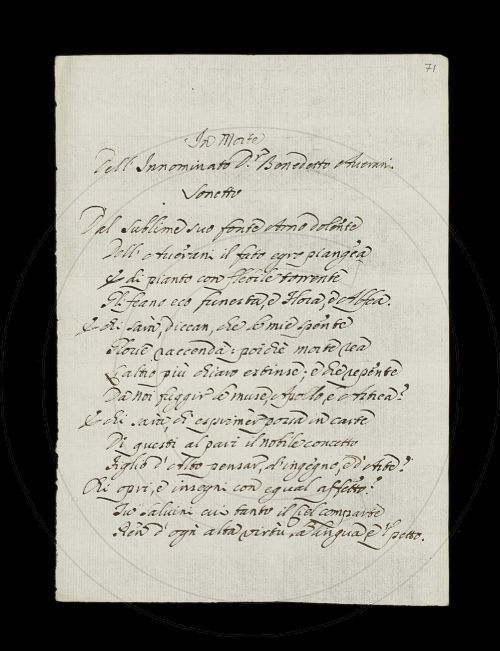 71
In Morte
Dell' Innominato D.r Benedetto Averani
Sonetto
Dal sublime suo fonte Arno dolente
Dell' Averani il fato egro piangea
E di pianto con flebile torrente
Gli feano eco funesta, e Flora, e Alfea.
E chi sarà, diccan, che
Nove raccenda: poichè morte rea
L'altro più chiaro estinse; e che repente
Da noi fuggir le muse, Apollo e Astrea?
E chi sarà di esprimer possa in carte
Di questi al pari il nobile concetto
Figlio d'alto pensar, d'ingegno, e d'Arte?
Chi opri, e insegni con egual affetto?
Tu Salvini cui tanto il Ciel comparte
Ren d'ogn' alta virtù la lingua e 'l petto.